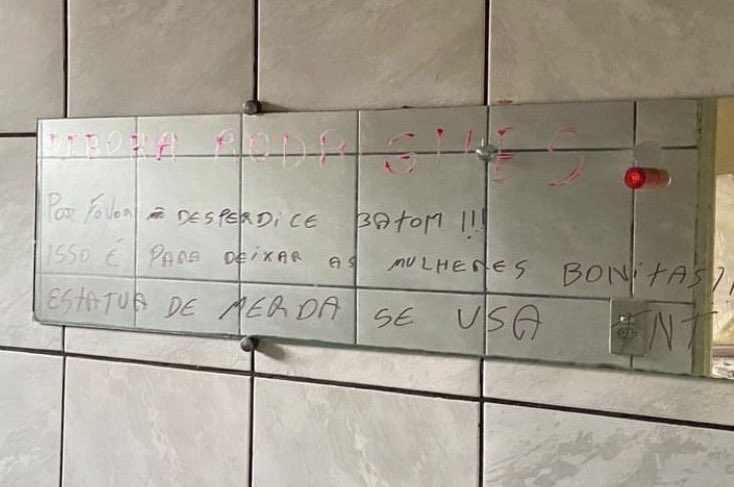 DEBORA RODRIGUES
Por Favor não DESPERDICE BATOM !!!
ISSO É PARA DEIXAR AS MULHERES BONITAS!!
ESTATUA DE MERDA SE USA TNT